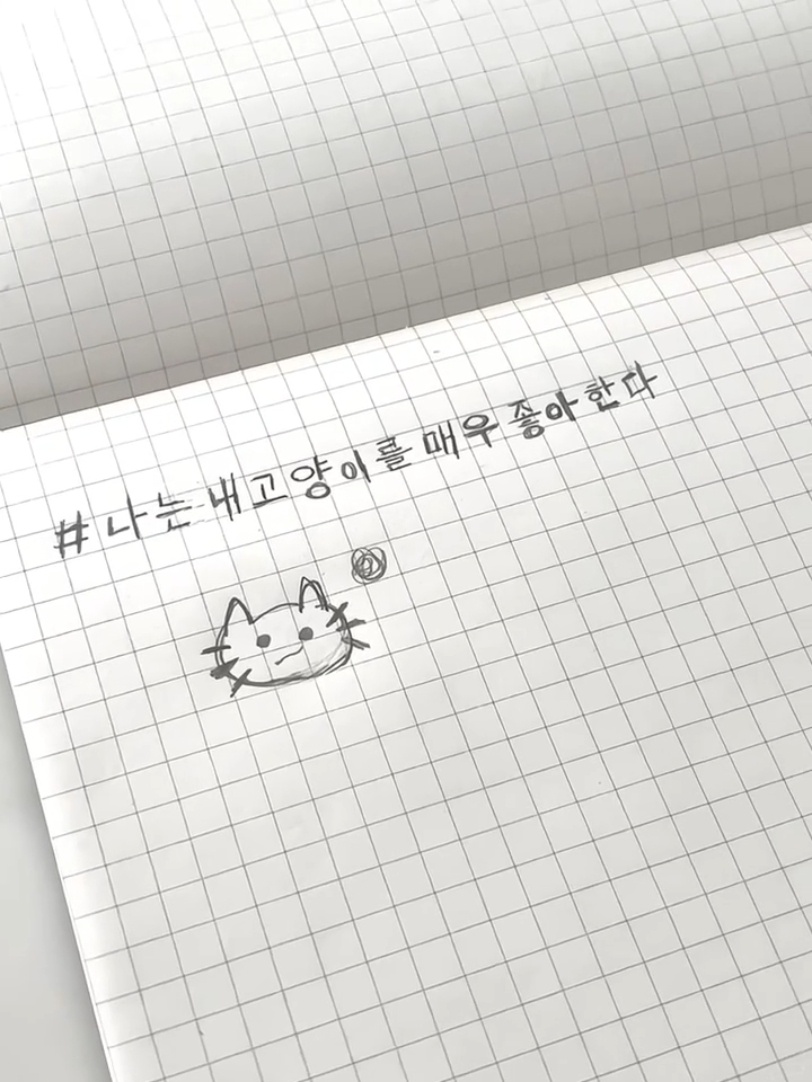 # 나는 내 고양이를 매우 좋아한다